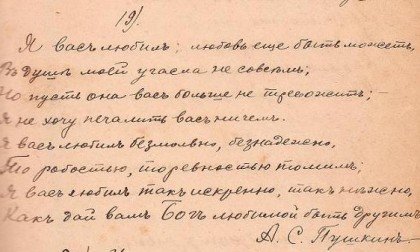 19).
Я васъ любилъ; любовь еще быть можетъ,
Въ душѣ моей угасла не совсѣмъ;
Но пусть она васъ больше не тревожитъ; –
Я не хочу печалить васъ ничемъ.
Я васъ любилъ безмолвно, безнадежно,
То робостью, то ревностью томимъ;
Я васъ любилъ такъ искренно, такъ нѣжно,
Какъ дай вамъ Богъ любимой быть другимъ
А. С. Пушкинъ